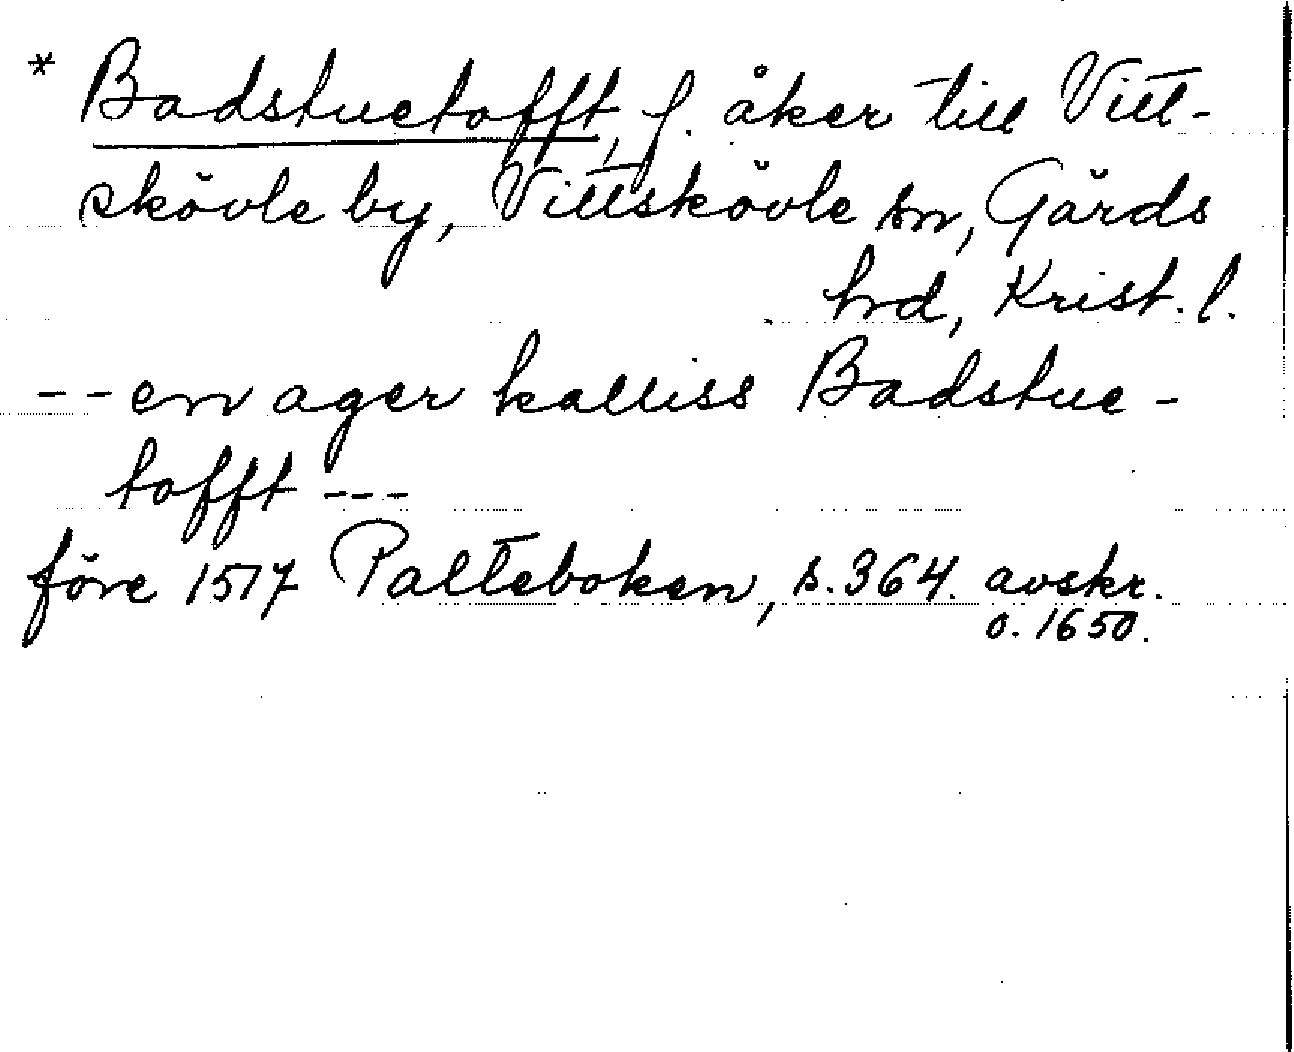 * Badstuetofft, f. åker till Vitt-
skövle by, Vittskövle sn, Gärds
hrd, Krist. l.
-- en ager kalliss Badstue-
tofft ---
före 1517 Palteboken, s. 364. avskr.
o. 1650.